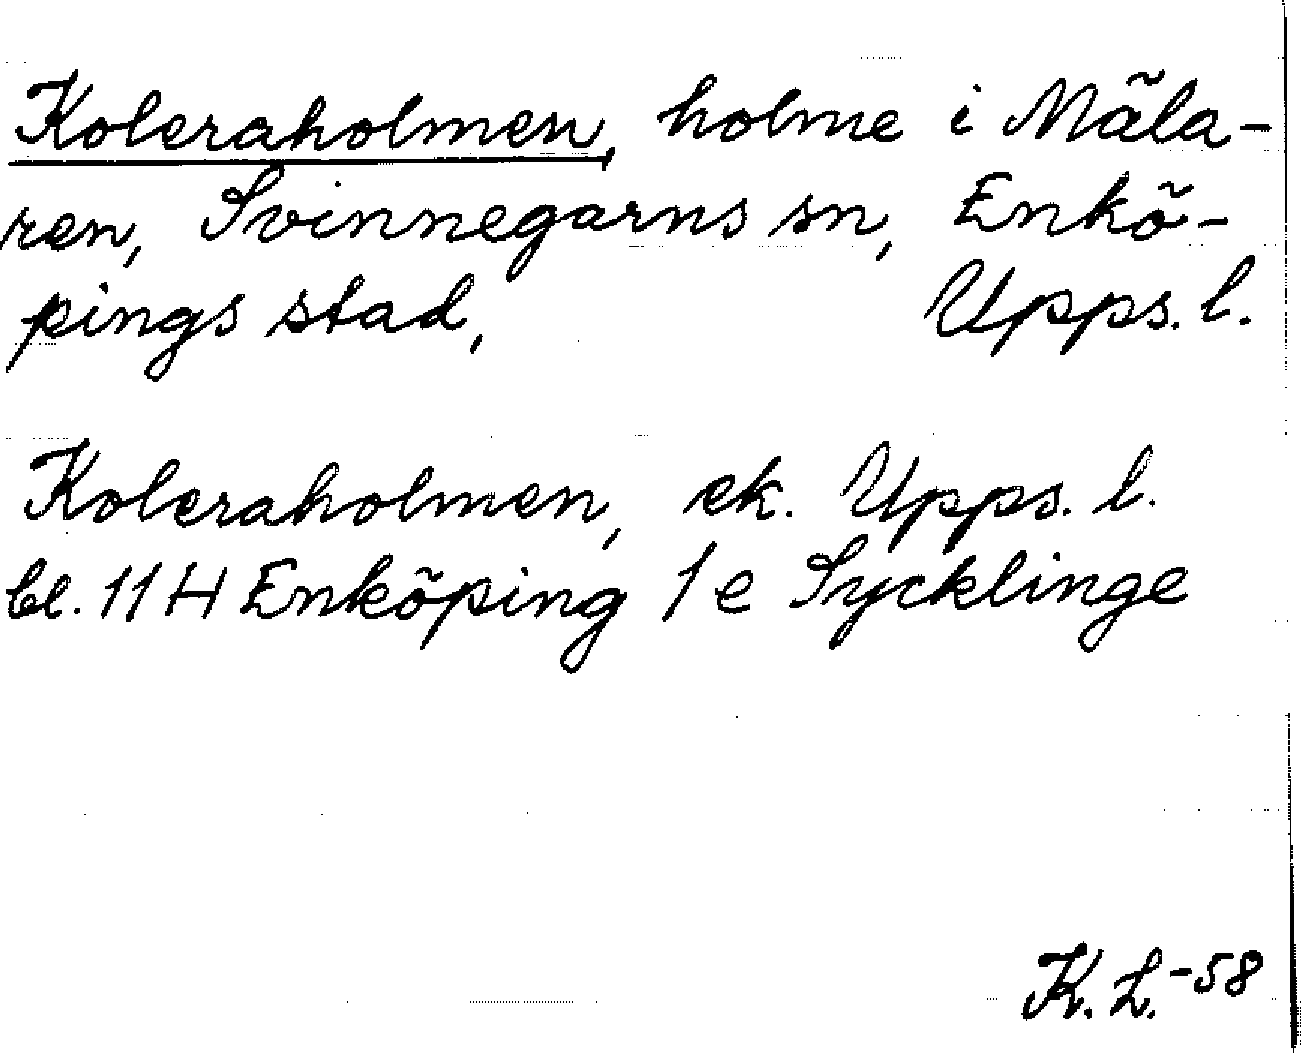 Koleraholmen, holme i Mäla-
ren, Svinnegarns sn, Enkö-
pings stad, Upps. l.
Koleraholmen, ek. Upps. l.
bl. 11 H Enköping 1 e Sycklinge
K. L. -58